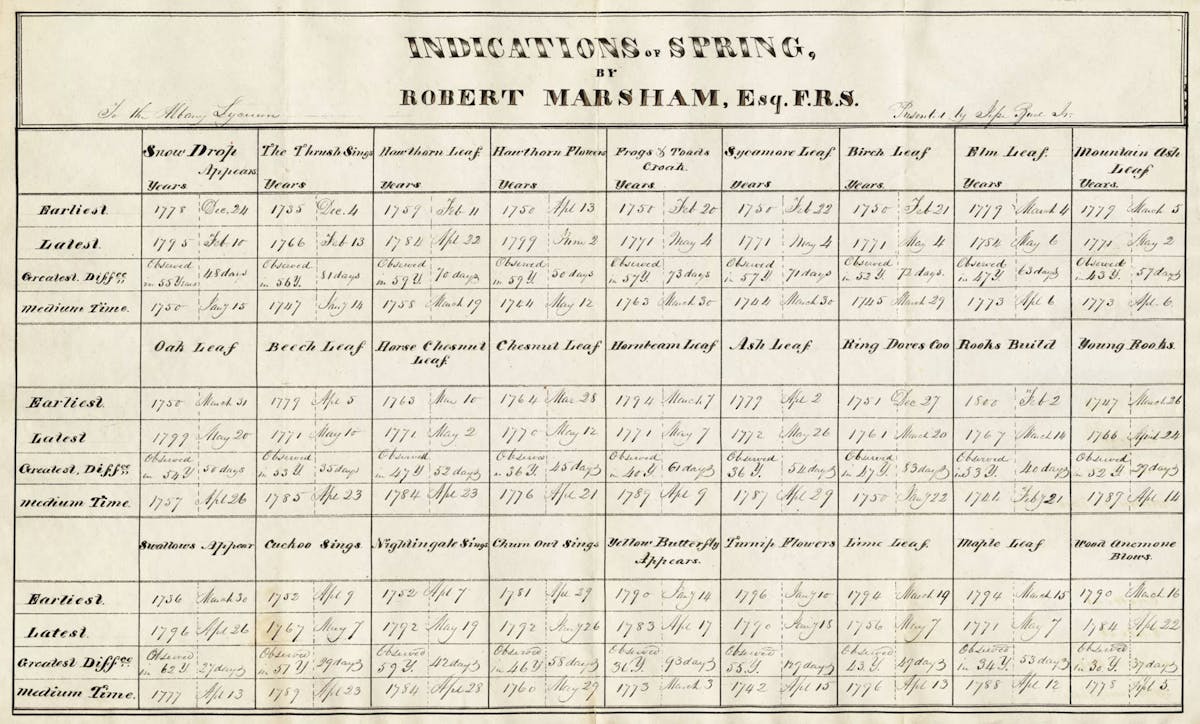 INDICATIONS OF SPRING,
BY
ROBERT MARSHAM, Esq. F.R.S.
To the Albany Lyceum
Presented by
Snow Drop Appears. The Thrush Sings Hawthorn Leaf. Hawthorn Flowers Frogs & Toads Croak. Sycamore Leaf Birch Leaf Elm Leaf. Mountain Ash Leaf
Years Years Years Years Years. Years Years. Years Years.
Earliest. 1778 Dec. 24 1735 Dec. 4 1759 Feb 11 1750 Apl 13 1750 Feb 20 1750 Feb 22 1750 Feb 21 1779 March 4 1779 March 5
Latest. 1795 Feb 10 1766 Feb 13 1784 Apl 22 1799 June 2 1771 May 4 1771 May 4 1771 May 4 1784 May 6 1771 May 2
Greatest. Diffce Observed in 55 Years 48 days Observed in 56 Y. 81 days Observed in 59 Y. 70 days Observed in 59 Y. 50 days Observed in 57 Y. 73 days Observed in 57 Y 71 days Observed in 52 Y. 72 days. Observed in 47 Y. 63 days Observed in 43 Y. 57 days
Medium Time. 1750 Jany 15 1747 Jany 14 1758 March 19 1744 May 12 1763 March 30 1744 March 30 1745 March 29 1773 Apl 6 1773 Apl. 6
Oak Leaf Beech Leaf Horse Chesnut Leaf. Chesnut Leaf Hornbeam Leaf Ash Leaf Ring Doves Coo Rooks Build Young Rooks.
Earliest. 1750 March 31 1779 Apl 5 1763 Mar 10 1764 Mar 28 1794 March 7 1779 Apl 2 1751 Dec 27 1800 Feb 2 1747 March 26
Latest 1799 May 20 1771 May 10 1771 May 2 1770 May 12 1771 May 7 1772 May 26 1761 March 20 1767 March 14 1766 April 24
Greatest, Diffce Observed in 54 Y. 50 days Observed in 53 Y. 35 days Observed in 47 Y. 52 days Observed in 36 Y. 45 days Observed in 40 Y. 61 days Observed 36 Y. 54 days Observed in 47 Y. 83 days Observed in 53 Y. 40 days Observed in 52 Y. 29 days
Medium Time. 1757 Apl 26 1785 Apl 23 1784 Apl 23 1776 Apl 21 1789 Apl 9 1787 Apl 29 1750 Jany 22 1741 Feby 21 1787 Apl 14
Swallows Appear Cuckoo Sings. Nightingale Sings. Churn Owl Sings Yellow Butterfly Appears. Turnip Flowers Lime Leaf. Maple Leaf Wood Anemone Blows.
Earliest. 1736 March 30 1752 Apl 9 1752 Apl 7 1781 Apl 29 1790 Jany 14 1796 Jany 10 1794 March 19 1794 March 15 1790 March 16
Latest. 1796 Apl 26 1767 May 7 1792 May 19 1792 26 1783 Apl 17 1790 18 1756 May 7 1771 May 7 1784 Apl 22
Greatest Diffce Observed in 62 Y. 27 days Observed in 51 Y 29 days Observed 59 Y. 42 days Observed in 46 Y. 58 days Observed 36 Y. 93 days Observed 55 Y. days Observed 43 Y. 49 days Observed in 34 Y. 53 days Observed in 30 Y. 37 days
Medium Time. 1777 Apl 13 1789 Apl 23 1784 Apl 28 1760 May 29 1773 March 3 1742 Apl 15 1776 Apl 13 1788 Apl 12 1778 Apl 3.